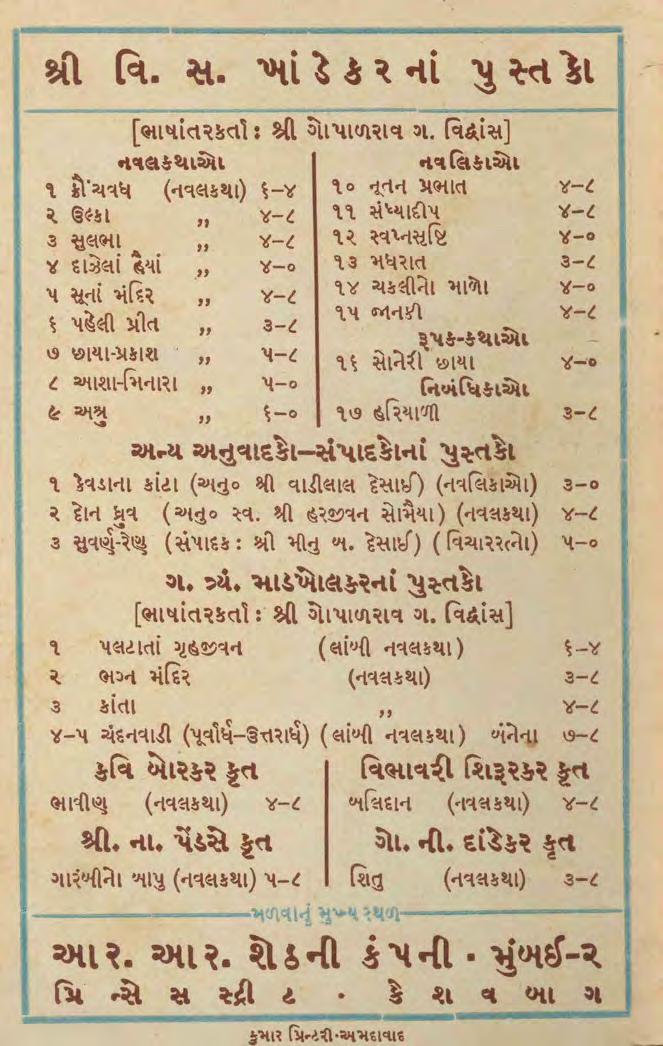 શ્રી વિ. સ. ખાંડેકરનાં પુસ્તકો
[ભાષાંતરકર્તા : શ્રી ગોપાળરાવ ગ. વિદ્વાંસ]
નવલકથાઓ
૧ ક્રૌંચવધ (નવલકથા) ૬–૪
૨ ઉલ્કા ,, ૪–૮
૩ સુલભા ,, ૪–૮
૪ દાઝેલાં હૈયાં ,, ૪–૦
૫ સૂનાં મંદિર ,, ૪–૮
૬ પહેલી પ્રીત ,, ૩–૮
૭ છાયા-પ્રકાશ ,, ૫–૮
૮ આશા-મિનારા ,, ૫–૦
૯ અશ્રુ ,, ૬–૦
નવલિકાઓ
૧૦ નૂતન પ્રભાત ૪–૮
૧૧ સંધ્યાદીપ ૪–૮
૧૨ સ્વપ્નસૃષ્ટિ ૪–૦
૧૩ મધરાત ૩–૮
૧૪ ચકલીનો માળો ૪–૦
૧૫ જાનકી ૪–૮
રૂપક-કથાઓ
૧૬ સોનેરી છાયા ૪–૦
નિબંધિકાઓ
૧૭ હરિયાળી ૩–૮
અન્ય અનુવાદકો–સંપાદકોનાં પુસ્તકો
૧ કેવડાના કાંટા (અનુ૦ શ્રી વાડીલાલ દેસાઈ) (નવલિકાઓ) ૩–૦
૨ દોન ધ્રુવ (અનુ૦ સ્વ. શ્રી હરજીવન સોમૈયા) (નવલકથા) ૪–૮
૩ સુવર્ણ-રેણુ (સંપાદક : શ્રી મીનુ બ. દેસાઈ) (વિચારરત્નો) ૫–૦
ગ. ત્ર્યં. માડખોલકરનાં પુસ્તકો
[ભાષાંતરકર્તા : શ્રી ગોપાળરાવ ગ. વિદ્વાંસ]
૧ પલટાતાં ગૃહજીવન (લાંબી નવલકથા) ૬–૪
૨ ભગ્ન મંદિર (નવલકથા) ૩–૮
૩ કાંતા ,, ૪–૮
૪–૫ ચંદનવાડી (પૂર્વાર્ધ–ઉત્તરાર્ધ) (લાંબી નવલકથા) બંનેના ૭–૮
કવિ બોરકર કૃત
ભાવીણ (નવલકથા) ૪–૮
વિભાવરી શિરૂરકર કૃત
બલિદાન (નવલકથા) ૪–૮
શ્રી. ના. પેંડસે કૃત
ગારંબીનો બાપુ (નવલકથા) ૫–૮
ગો. ની. દાંડેકર કૃત
શિતુ (નવલકથા) ૩–૮
મળવાનું મુખ્ય સ્થળ
આર. આર. શેઠની કંપની • મુંબઈ–૨
પ્રિન્સેસ સ્ટ્રીટ • કેશવબાગ
કુમાર પ્રિન્ટરી•અમદાવાદ